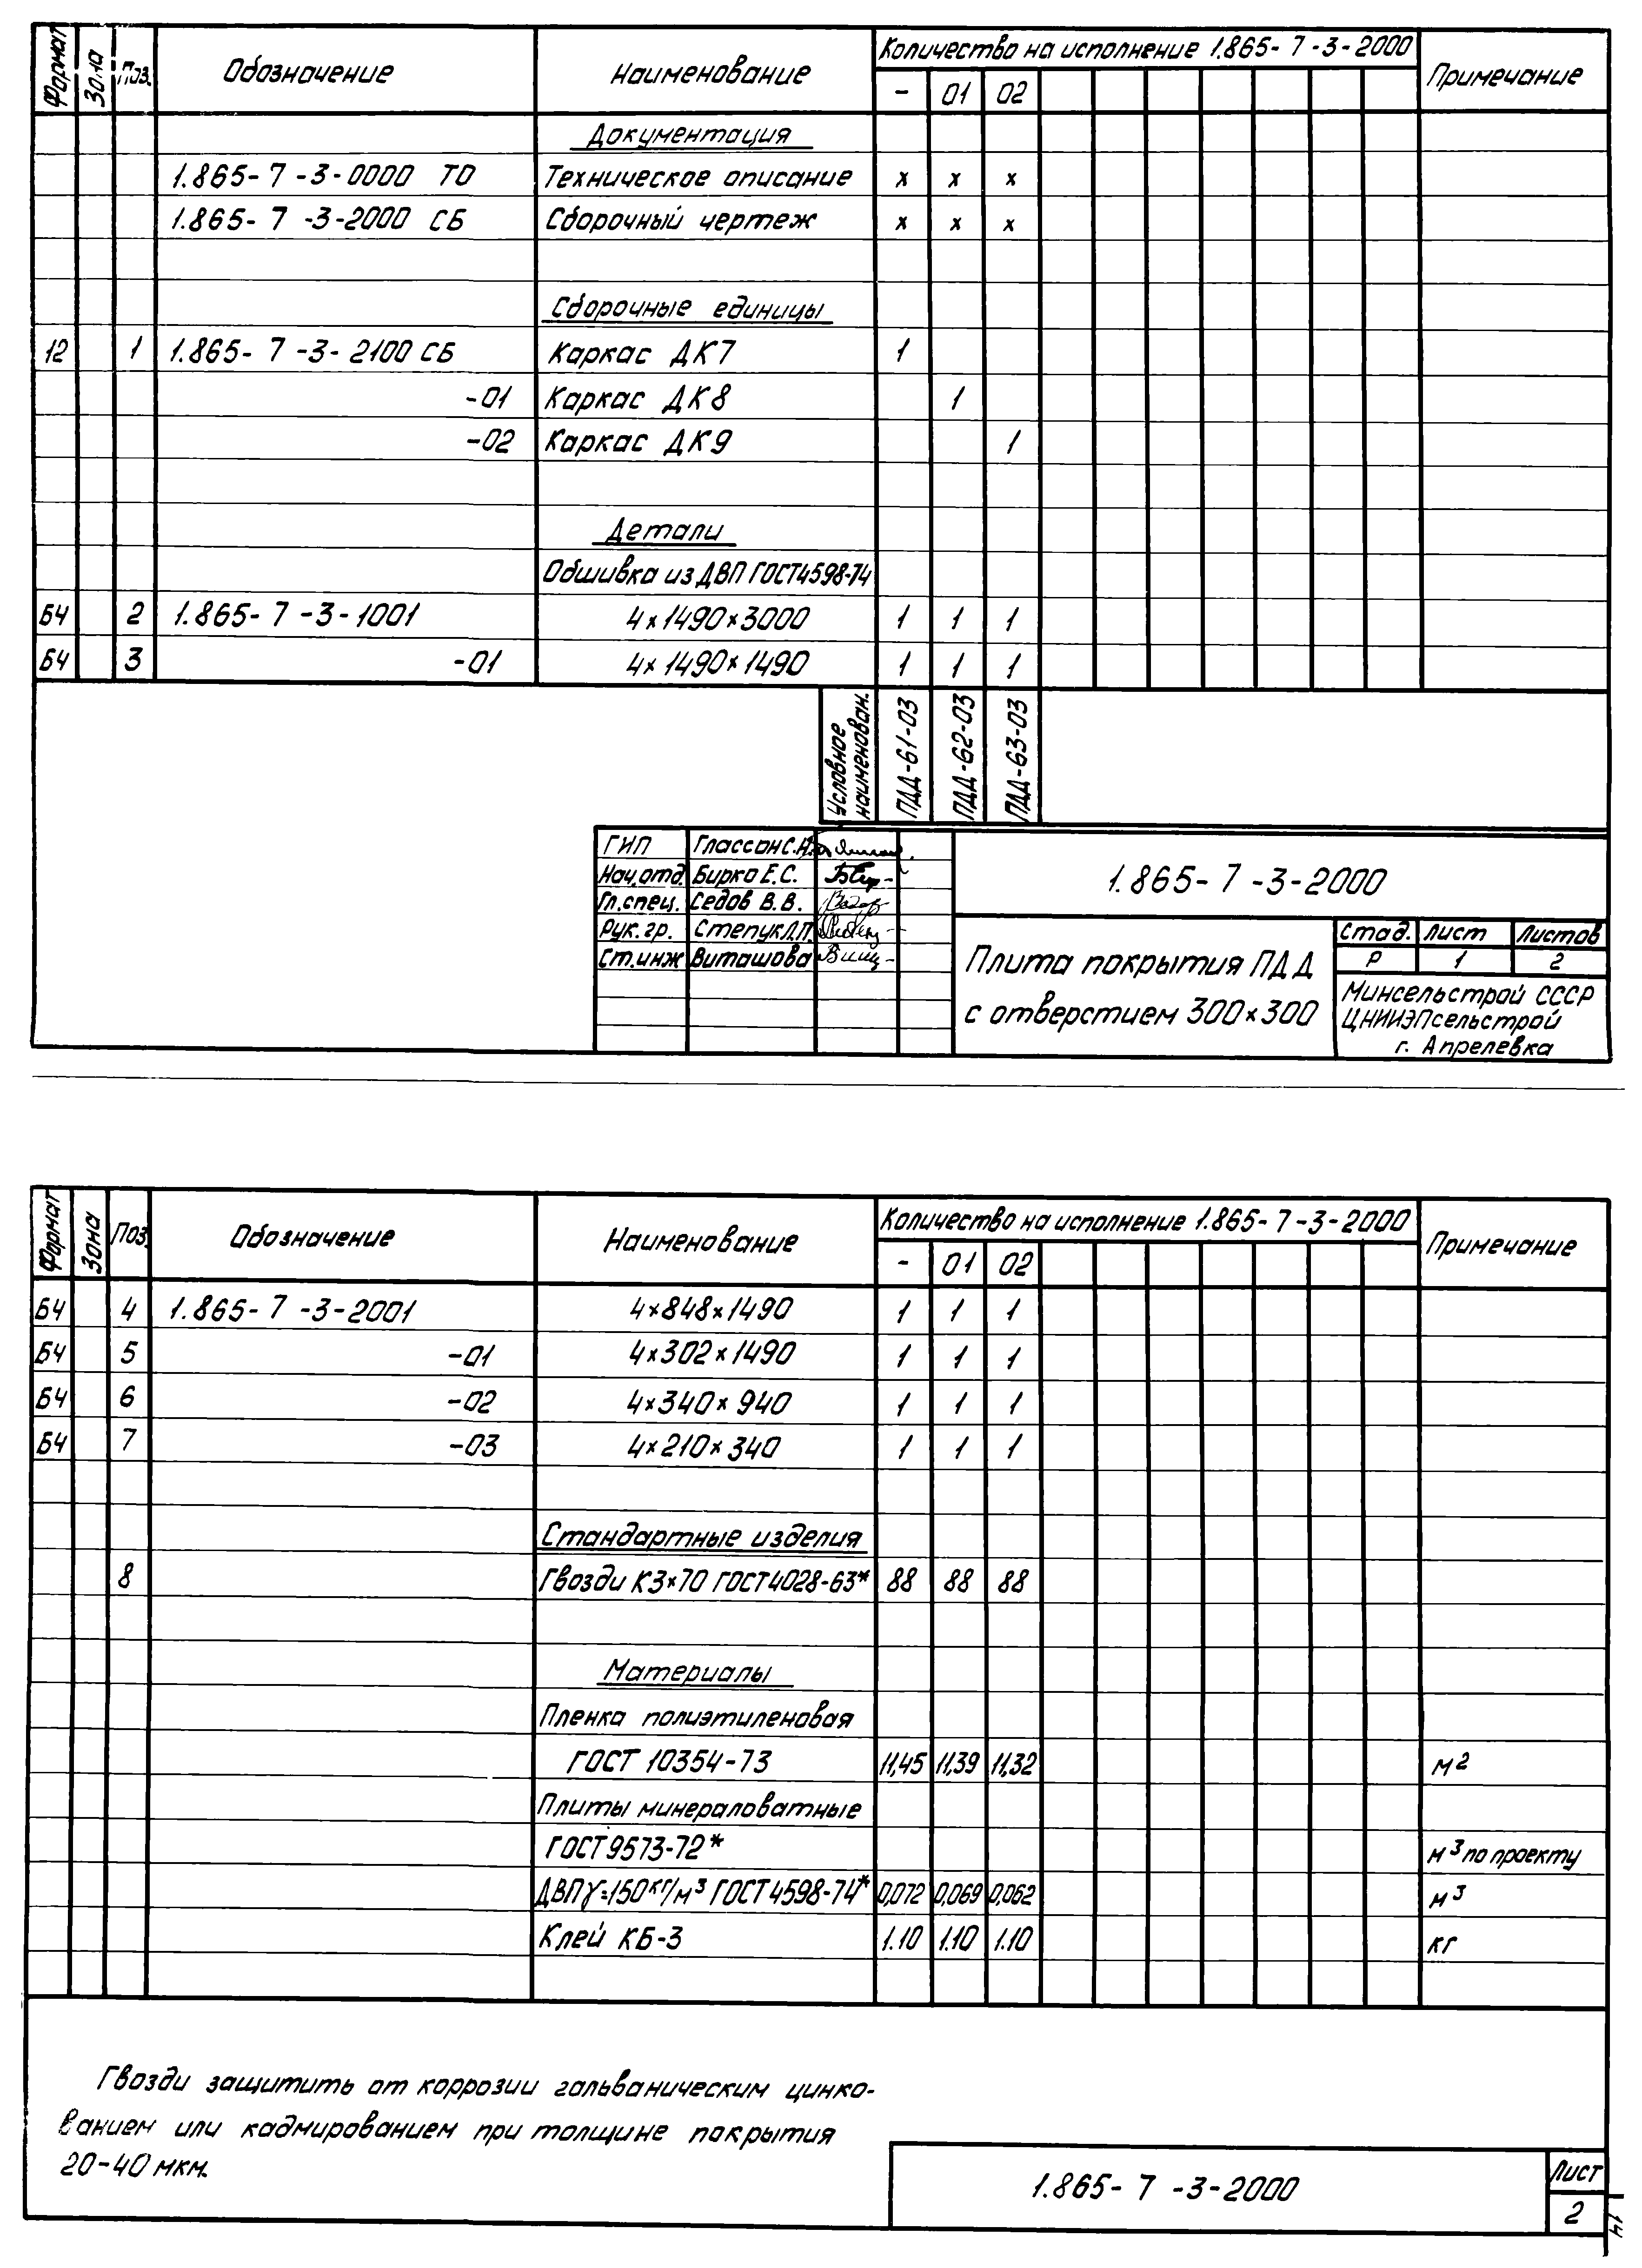 Формат Зона Поз. Обозначение Наименование Количество на исполнение 1.865- 7 -3-2000 Примечание
- 01 02
Документация
1.865- 7 -3-0000 ТО Техническое описание х х х
1.865- 7 -3-2000 СБ Сборочный чертеж х х х
Сборочные единицы
12 1 1.865- 7 -3- 2100 СБ Каркас ДК7 1
-01 Каркас ДК8 1
-02 Каркас ДК9 1
Детали
Обшивка из ДВП ГОСТ4598-74
БЧ 2 1.865- 7 -3-1001 4×1490×3000 1 1 1
БЧ 3 -01 4×1490×1490 1 1 1
Условное наименован. ПДД-61-03 ПДД-62-03 ПДД-63-03
ГИП Глассон С.Н.
Нач.отд. Бирко Е.С.
Гл.спец. Седов В.В.
Рук.гр. Степук Л.П.
Ст.инж Виташова
1.865- 7 -3-2000
Плита покрытия ПДД
с отверстием 300×300
Стад. Лист Листов
Р 1 2
Минсельстрой СССР
ЦНИИЭПсельстрой
г. Апрелевка
Формат Зона Поз. Обозначение Наименование Количество на исполнение 1.865- 7 -3-2000 Примечание
- 01 02
БЧ 4 1.865- 7 -3-2001 4×848×1490 1 1 1
БЧ 5 -01 4×302×1490 1 1 1
БЧ 6 -02 4×340×940 1 1 1
БЧ 7 -03 4×210×340 1 1 1
Стандартные изделия
8 Гвозди К3×70 ГОСТ4028-63* 88 88 88
Материалы
Пленка полиэтиленовая
ГОСТ 10354-73 11,45 11,39 11,32 м²
Плиты минераловатные
ГОСТ9573-72* м³ по проекту
ДВП γ=150кг/м³ ГОСТ4598-74* 0,072 0,069 0,062 м³
Клей КБ-3 1.10 1.10 1.10 кг
Гвозди защитить от коррозии гальваническим цинко-
ванием или кадмированием при толщине покрытия
20-40 мкм.
1.865- 7 -3-2000
Лист
2
14